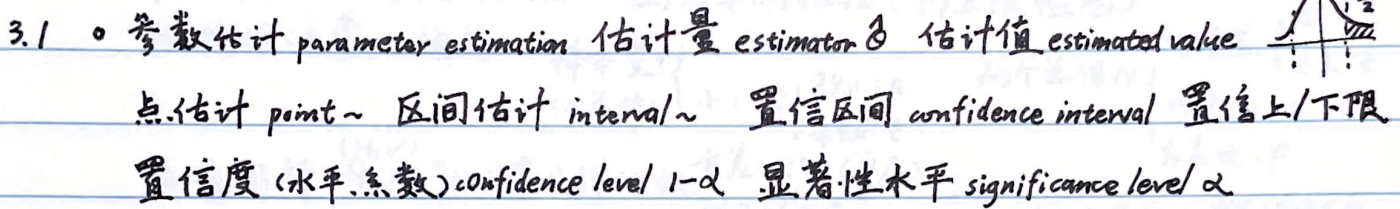 3.1 ∘ 参数估计 parameter estimation 估计量 estimator θ̂ 估计值 estimated value
点估计 point~ 区间估计 interval~ 置信区间 confidence interval 置信上/下限
置信度(水平.系数) confidence level 1-α 显著性水平 significance level α